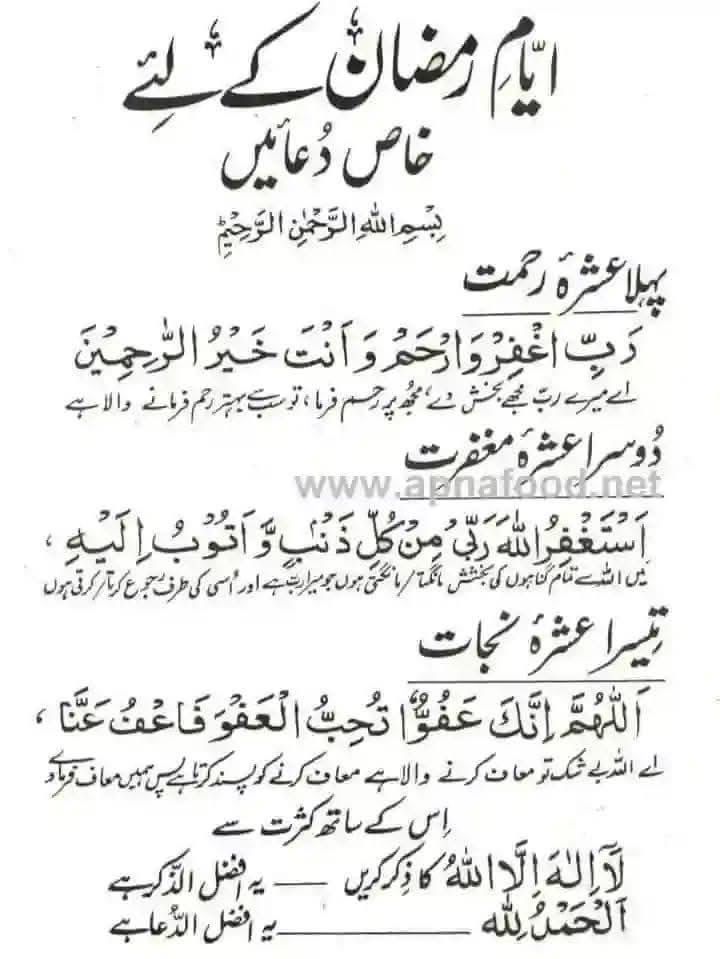 ایّامِ رمضان کے لئے
خاص دُعائیں
بِسْمِ اللهِ الرَّحْمٰنِ الرَّحِيْمِ
پہلا عشرۂ رحمت
رَبِّ اغْفِرْ وَارْحَمْ وَاَنْتَ خَيْرُ الرّٰحِمِيْنَ
اے میرے ربّ مجھے بخش دے، مجھ پر رحم فرما، تو سب سے بہتر رحم فرمانے والا ہے
دُوسرا عشرۂ مغفرت
www.apnafood.net
اَسْتَغْفِرُ اللهَ رَبِّیْ مِنْ كُلِّ ذَنْبٍ وَّاَتُوْبُ اِلَيْهِ ،
میں اللہ سے تمام گناہوں کی بخشش مانگتا/مانگتی ہوں جو میرا ربّ ہے اور اُسی کی طرف رجوع کرتا/کرتی ہوں
تیسرا عشرۂ نجات
اَللّٰهُمَّ اِنَّكَ عَفُوٌّ تُحِبُّ الْعَفْوَ فَاعْفُ عَنَّا ،
اے اللہ بے شک تو معاف کرنے والا ہے معاف کرنے کو پسند کرتا ہے پس ہمیں معاف فرما دے
اِس کے ساتھ کثرت سے
لَآ اِلٰهَ اِلَّا اللهُ کا ذِکر کریں — یہ افضل الذّکر ہے
اَلْحَمْدُ لِلّٰه ——— یہ افضل الدُّعا ہے